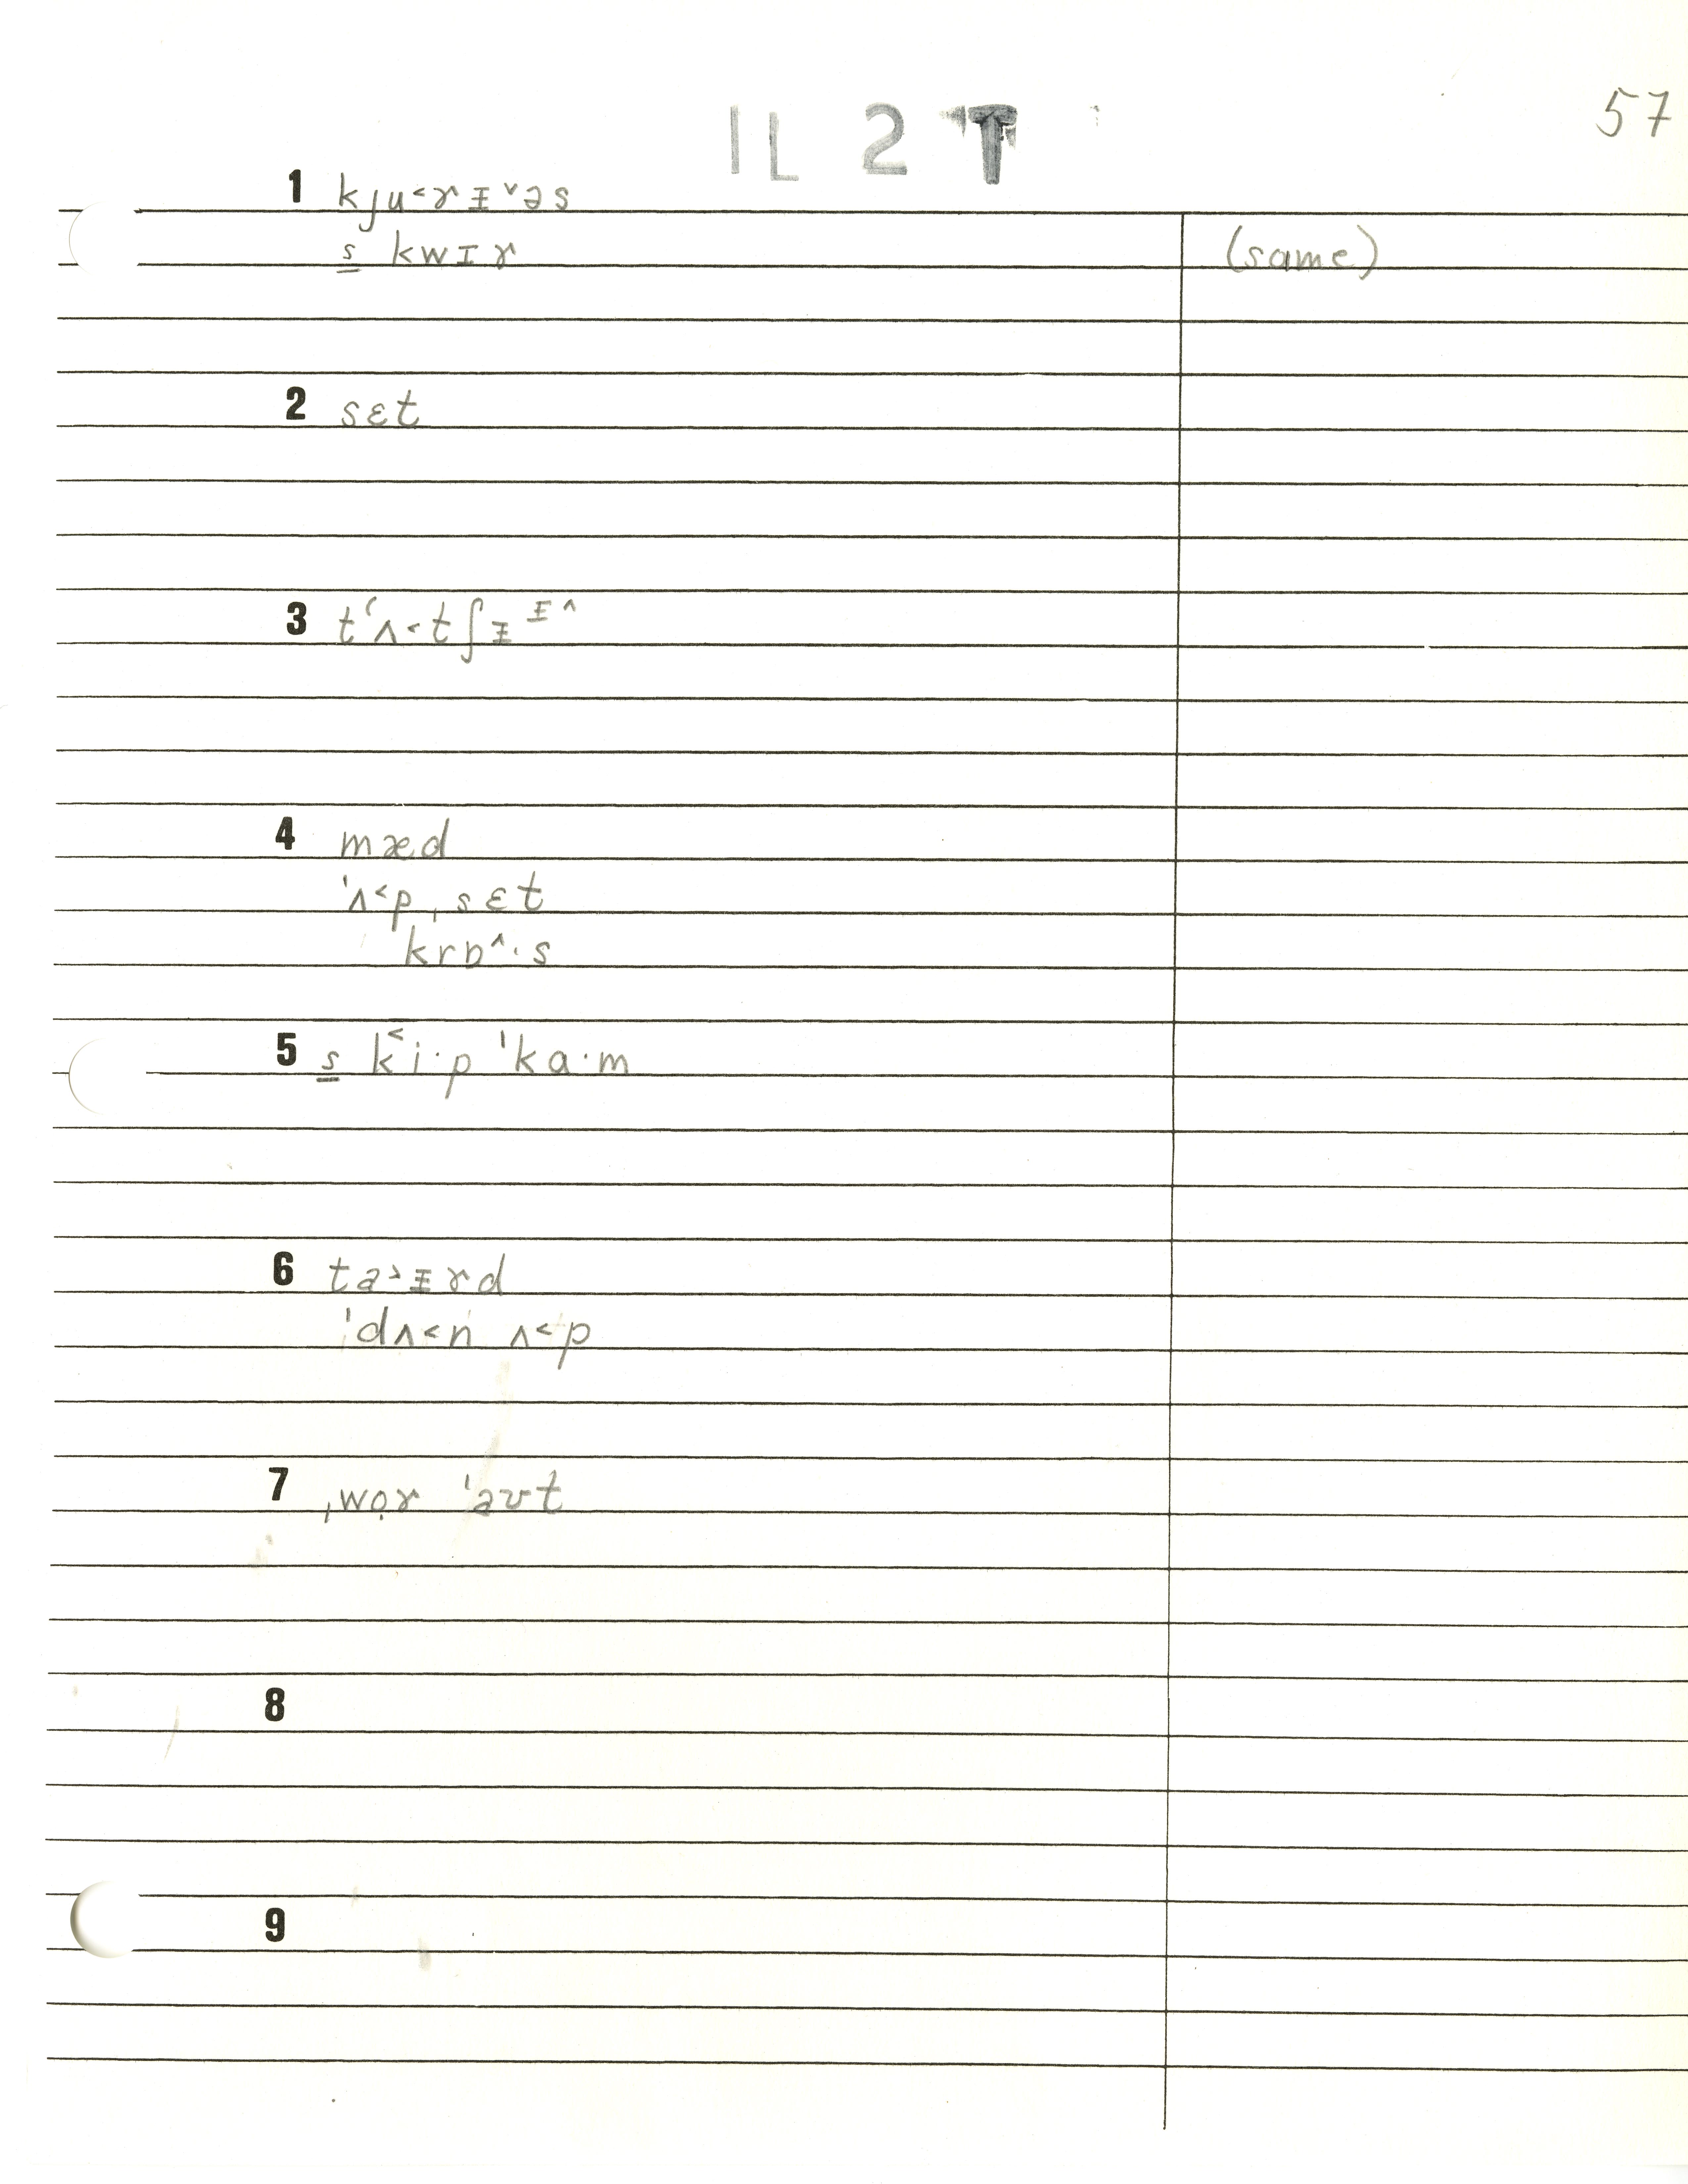 57
IL 2 T
1 kju˂ɤᵻ˅əs
s̲ kwɪɤ (same)
2 sɛt
3 tʻʌ˂tʃᵻᵻ˄
4 mæd
ˈʌ˂pˌsɛt
krɒ˄·s
5 s̲ k˂i·p ˈka·m
6 ta˃ᵻɤd
ˈdʌ˂n ʌ˂p
7 ˌwọɤ ˈaʊt
8
9